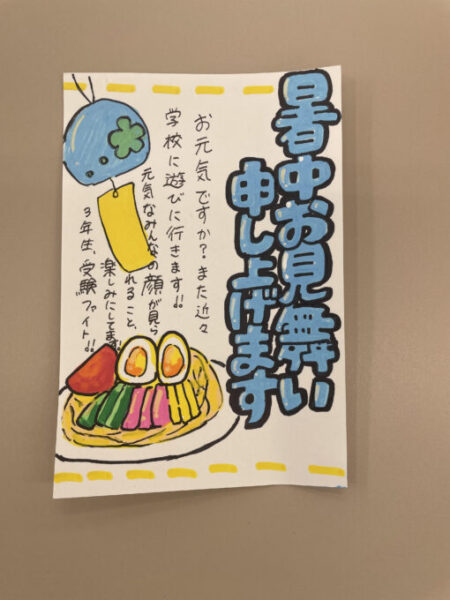 暑中お見舞い
申し上げます
お元気ですか？また近々
学校に遊びに行きます!!
元気なみんなの顔が見ら
れること、
楽しみにしてます!!
3年生、受験ファイト!!